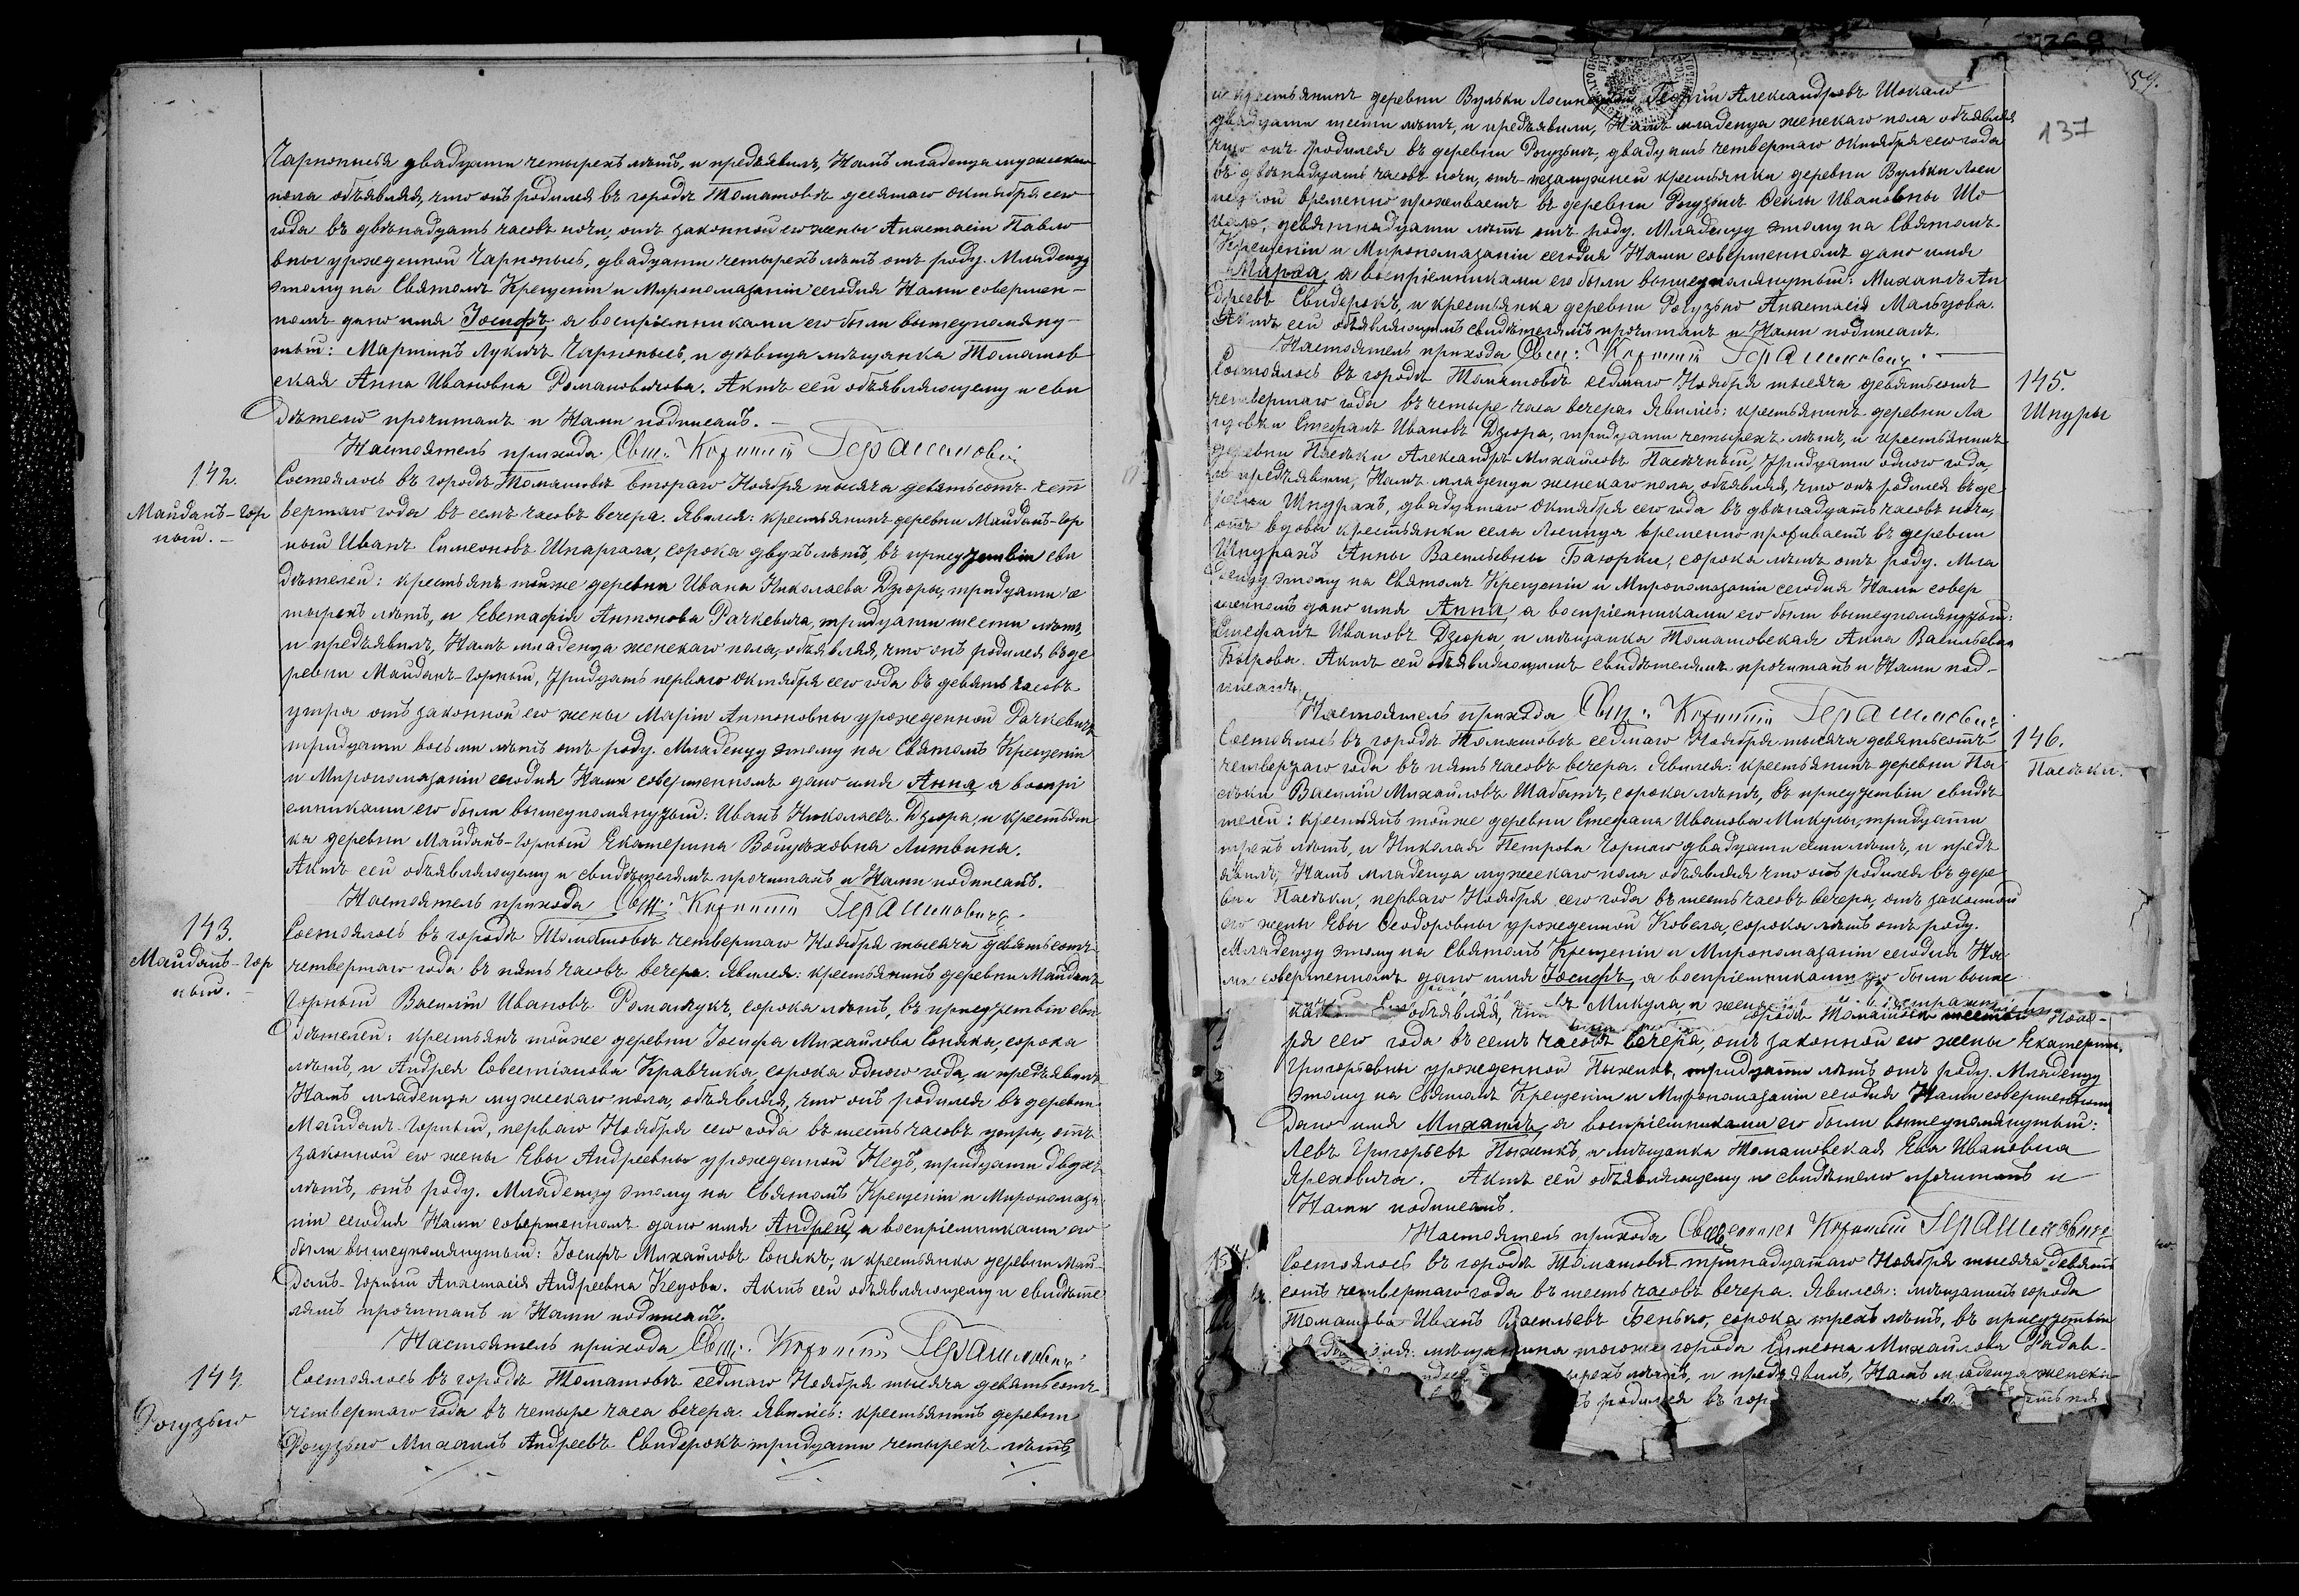 Чарнопысья двадцати четырехъ лѣтъ, и предъявилъ, Намъ младенца мужскаго
пола объявляя, что онъ родился въ городѣ Томашовѣ десятаго Октября сего
года въ двѣнадцать часовъ ночи, отъ законной его жены Анастасіи Павло
вны урожденной Чарнопысь, двадцати четырехъ лѣтъ отъ роду. Младенцу
этому на Святомъ Крещеніи и Миропомазаніи сегодня Нами совершен-
номъ дано имя Іосифъ а воспріемниками его были вышеупомяну-
тый: Мартинъ Лукичъ Чарнопысь, и дѣвица мѣщанка Томашов
ская Анна Ивановна Романовичова. Актъ сей объявляющему и сви
дѣтелю прочитанъ и Нами подписанъ. -
Настоятель прихода Свящ:
142.
Майданъ-Гор
ный. -
Состоялось въ городѣ Томашовѣ втораго Ноября тысяча девятьсотъ чет
вертаго года въ семь часовъ вечера. Явился: крестьянинъ деревни Майданъ-Гор
ный Иванъ Симеоновъ Шпаргала, сорока двухъ лѣтъ, въ присутствіи сви
дѣтелей: крестьянъ тойже деревни Ивана Николаева Дзюры, тридцати че
тырехъ лѣтъ, и Евстафія Антонова Рачкевича, тридцати шести лѣтъ,
и предъявилъ, Намъ младенца женскаго пола, объявляя, что онъ родился въ де
ревни Майданъ-Горный, тридцать перваго Октября сего года въ девять часовъ
утра отъ законной его жены Маріи Антоновны урожденной Рачкевичъ
тридцати восьми лѣтъ отъ роду. Младенцу этому на Святомъ Крещеніи
и Миропомазаніи сегодня Нами совершенномъ дано имя Анна а воспрі
емниками его были вышеупомянутый: Иванъ Николаевъ Дзюра, и крестьян
ка деревни Майданъ-Горный Екатерина Войцѣховна Литвина.
Актъ сей объявляющему и свидѣтелямъ прочитанъ и Нами подписанъ.
Настоятель прихода Свящ:
143.
Майданъ-Гор
ный. -
Состоялось въ городѣ Томашовѣ четвертаго Ноября тысяча девятьсотъ
четвертаго года въ пять часовъ вечера. Явился: крестьянинъ деревни Майданъ
Горный Василій Ивановъ Романюкъ, сорока лѣтъ, въ присутствіи сви-
дѣтелей: крестьянъ тойже деревни Іосифа Михайлова Соняка, сорока
лѣтъ, и Андрея Совестіанова Кравчика, сорока одного года, и предъявилъ
Намъ младенца мужскаго пола, объявляя, что онъ родился въ деревни
Майданъ-Горный, перваго Ноября сего года въ шесть часовъ утра, отъ
законной его жены Евы Андреевны урожденной Кецъ, тридцати двухъ
лѣтъ, отъ роду. Младенцу этому на Святомъ Крещеніи и Миропомаза
ніи сегодня Нами совершенномъ дано имя Андрей, а воспріемниками его
были вышеупомянутый: Іосифъ Михайловъ Сонякъ, и крестьянка деревни Май-
данъ-Горный Анастасія Андреевна Кецова. Актъ сей объявляющему и свидѣте
лямъ прочитанъ и Нами подписанъ.
Настоятель прихода Свящ:
144.
Рогузьно
Состоялось въ городѣ Томашовѣ седмаго Ноября тысяча девятьсотъ
четвертаго года въ четыре часа вечера. Явились: крестьянинъ деревни
Рогузьно Михаилъ Андреевъ Свидерокъ тридцати четырехъ лѣтъ,
59.
137
и крестьянинъ деревни Вульки Лосинецкой Георгій Александровъ Шокало
двадцати шести лѣтъ, и предъявили, Намъ младенца женскаго пола объявляя
что онъ родился въ деревни Рогузьнѣ, двадцать четвертаго Октября сего года
въ двѣнадцать часовъ ночи, отъ незамужней крестьянки деревни Вульки Лоси
нецкой временно проживаетъ въ деревни Рогузьнѣ Феклы Ивановны Шо
кало, девятнадцати лѣтъ отъ роду. Младенцу этому на Святомъ
Крещеніи и Миропомазаніи сегодня Нами совершенномъ дано имя
Марѳа, а воспріемниками его были вышеупомянутый: Михаилъ Ан
дреевъ Свидерокъ, и крестьянка деревни Рогузьно Анастасія Мальцова.
Актъ сей объявляющимъ свидѣтелямъ прочитанъ и Нами подписанъ.
Настоятель прихода Свящ:
145.
Шпуры
Состоялось въ городѣ Томашовѣ седмаго Ноября тысяча девятьсотъ
четвертаго года въ четыре часа вечера. Явились: крестьянинъ деревни Ла
щовки Стефанъ Ивановъ Дзюра, тридцати четырехъ лѣтъ, и крестьянинъ
деревни Пасѣки Александръ Михайловъ Пасѣчный, тридцати одного года,
и предъявили, Намъ младенца женскаго пола, объявляя, что онъ родился въ де
ревни Шпурахъ, двадцатаго Октября сего года въ двѣнадцать часовъ ночи,
отъ вдовы крестьянки села Лосинца временно проживаетъ въ деревни
Шпурахъ Анны Васильевны Баюрки, сорока лѣтъ отъ роду. Мла
денцу этому на Святомъ Крещеніи и Миропомазаніи сегодня Нами совер
шенномъ дано имя Анна, а воспріемниками его были вышеупомянутый:
Стефанъ Ивановъ Дзюра, и мѣщанка Томашовская Анна Васильевна
Бырова. Актъ сей объявляющимъ свидѣтелямъ прочитанъ и Нами под-
писанъ.
Настоятель прихода Свящ:
146.
Пасѣки.
Состоялось въ городѣ Томашовѣ седмаго Ноября тысяча девятьсотъ
четвертаго года въ пять часовъ вечера. Явился: крестьянинъ деревни Па
сѣки Василій Михайловъ Шабатъ, сорока лѣтъ, въ присутствіи свидѣ
телей: крестьянъ тойже деревни Стефана Иванова Микулы, тридцати
трехъ лѣтъ, и Николая Петрова Горнаго двадцати семи лѣтъ, и предъ
явилъ, Намъ младенца мужскаго пола объявляя что онъ родился въ дере
вни Пасѣки, перваго Ноября сего года въ шесть часовъ вечера, отъ законной
его жены Евы Ѳеодоровны урожденной Ковела, сорока лѣтъ отъ роду.
Младенцу этому на Святомъ Крещеніи и Миропомазаніи сегодня На
ми совершенномъ дано имя Іосифъ, а воспріемниками его были выше
объявляя, Микула, и жена городѣ Томашовѣ шестаго Нояб-
ря сего года въ семь часовъ вечера, отъ законной его жены Екатерины
Григорьевны урожденной Пыжикъ, тридцати лѣтъ отъ роду. Младенцу
этому на Святомъ Крещеніи и Миропомазаніи сегодня Нами совершенномъ
дано имя Михаилъ, а воспріемниками его были вышеупомянутый:
Левъ Григорьевъ Пыжикъ, и мѣщанка Томашовская Ева Ивановна
Яреховича. Актъ сей объявляющему и свидѣтелю прочитанъ и
Нами подписанъ.
Настоятель прихода Священникъ
Состоялось въ городѣ Томашовѣ тринадцатаго Ноября тысяча девять
сотъ четвертаго года въ шесть часовъ вечера. Явился: мѣщанинъ города
Томашова Иванъ Васильевъ Бенько, сорока трехъ лѣтъ, въ присутствіи
мѣщанина тогоже города Симеона Михайлова
лѣтъ, и предъявилъ, Намъ младенца женска
родился въ гор